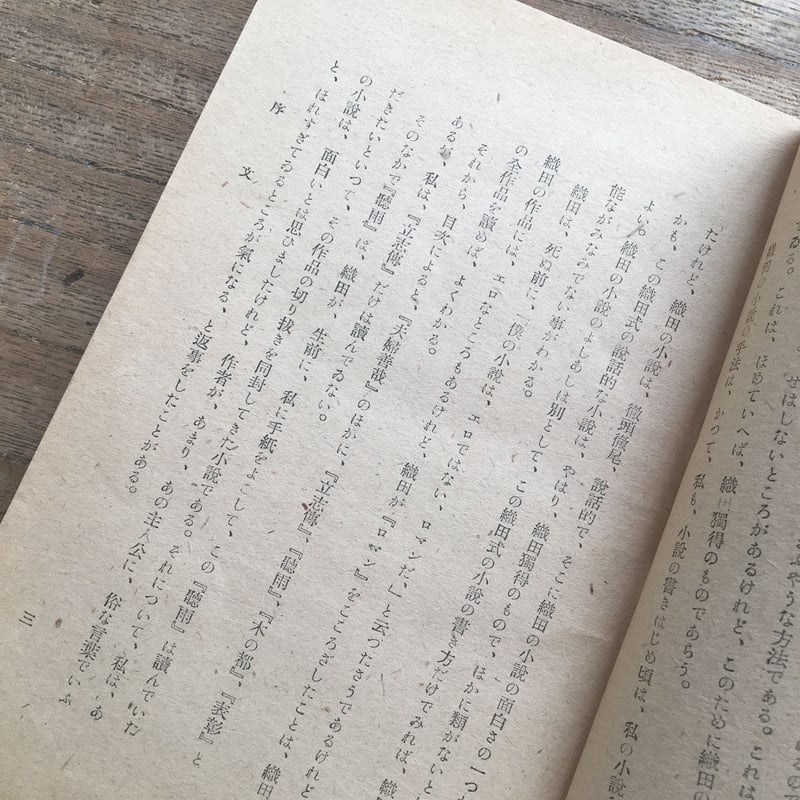 せはしないところがあるけれど、このために織田の
きる。これは、ほめていへば、織田獨得のものであらう。
織田の小說の手法は、かつて、私も、小說の書きはじめ頃は、私の小說
たけれど、織田の小說は、徹頭徹尾、說話的で、そこに織田の小說の面白さの一つ
かも、この織田式の說話的な小說は、やはり、織田獨得のもので、ほかに類がないと
よい。織田の小說のよしあしは別として、この織田式の小說の書き方だけでみれば、織
能ながみなみでない事がわかる。
織田は、死ぬ前に、『僕の小說は、エロではない、ロマンだ、』と云つたさうであるけれど
織田の作品には、エロなところもあるけれど、織田が『ロマン』をこころざしたことは、織田
の全作品を讀めば、よくわかる。
それから、目次によると、『夫婦善哉』のほかに、『立志傳』、『聽雨』、『木の都』、『表彰』と
あるが、私は、『立志傳』だけは讀んでゐない。
そのなかで『聽雨』は、織田が、生前に、私に手紙をよこして、この『聽雨』は讀んでいた
だきたいといつて、その作品の切り拔きを同封してきた小說である。それについて、私は、あ
の小說は、面白いとは思ひましたけれど、作者が、あまり、あの主人公に、俗な言葉でいふ
と、ほれすぎてゐるところが氣になる、と返事をしたことがある。
序 文
三